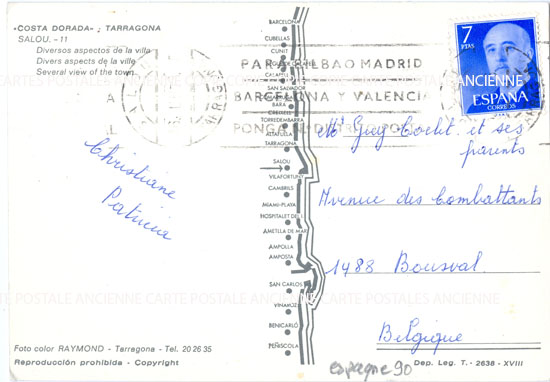 «COSTA DORADA» ; TARRAGONA
SALOU. - 11
Diversos aspectos de la villa
Divers aspects de la ville
Several view of the town
BARCELONA
CUBELLAS
CUNIT
CALAFELL
SAN SALVADOR
BARA
CREIXELL
TORREDEMBARRA
ALTAFULLA
TARRAGONA
SALOU
VILAFORTUNY
CAMBRILS
MIAMI-PLAYA
HOSPITALET DE I.
AMETLLA DE MAR
AMPOLLA
AMPOSTA
SAN CARLOS
VINAROZ
BENICARLÓ
PEÑISCOLA
PARA BILBAO MADRID
BARCELONA Y VALENCIA
PONGA DISTRITO POSTAL
7
PTAS
ESPAÑA
CORREOS
Christiane
Patricia
Mr Guy Coelit et ses
parents
Avenue des Combattants
1488 Bousval
Belgique
CARTE POSTALE ANCIENNE CARTE POSTALES ANCIENNE
POSTALE ANCIENNE CARTE POSTALE ANCIENNE CARTE POSTALES ANCIENNE
Foto color RAYMOND - Tarragona - Tel. 20 26 35
Reproducción prohibida - Copyright
espagne 90
Dep. Leg. T. - 2638 - XVIII